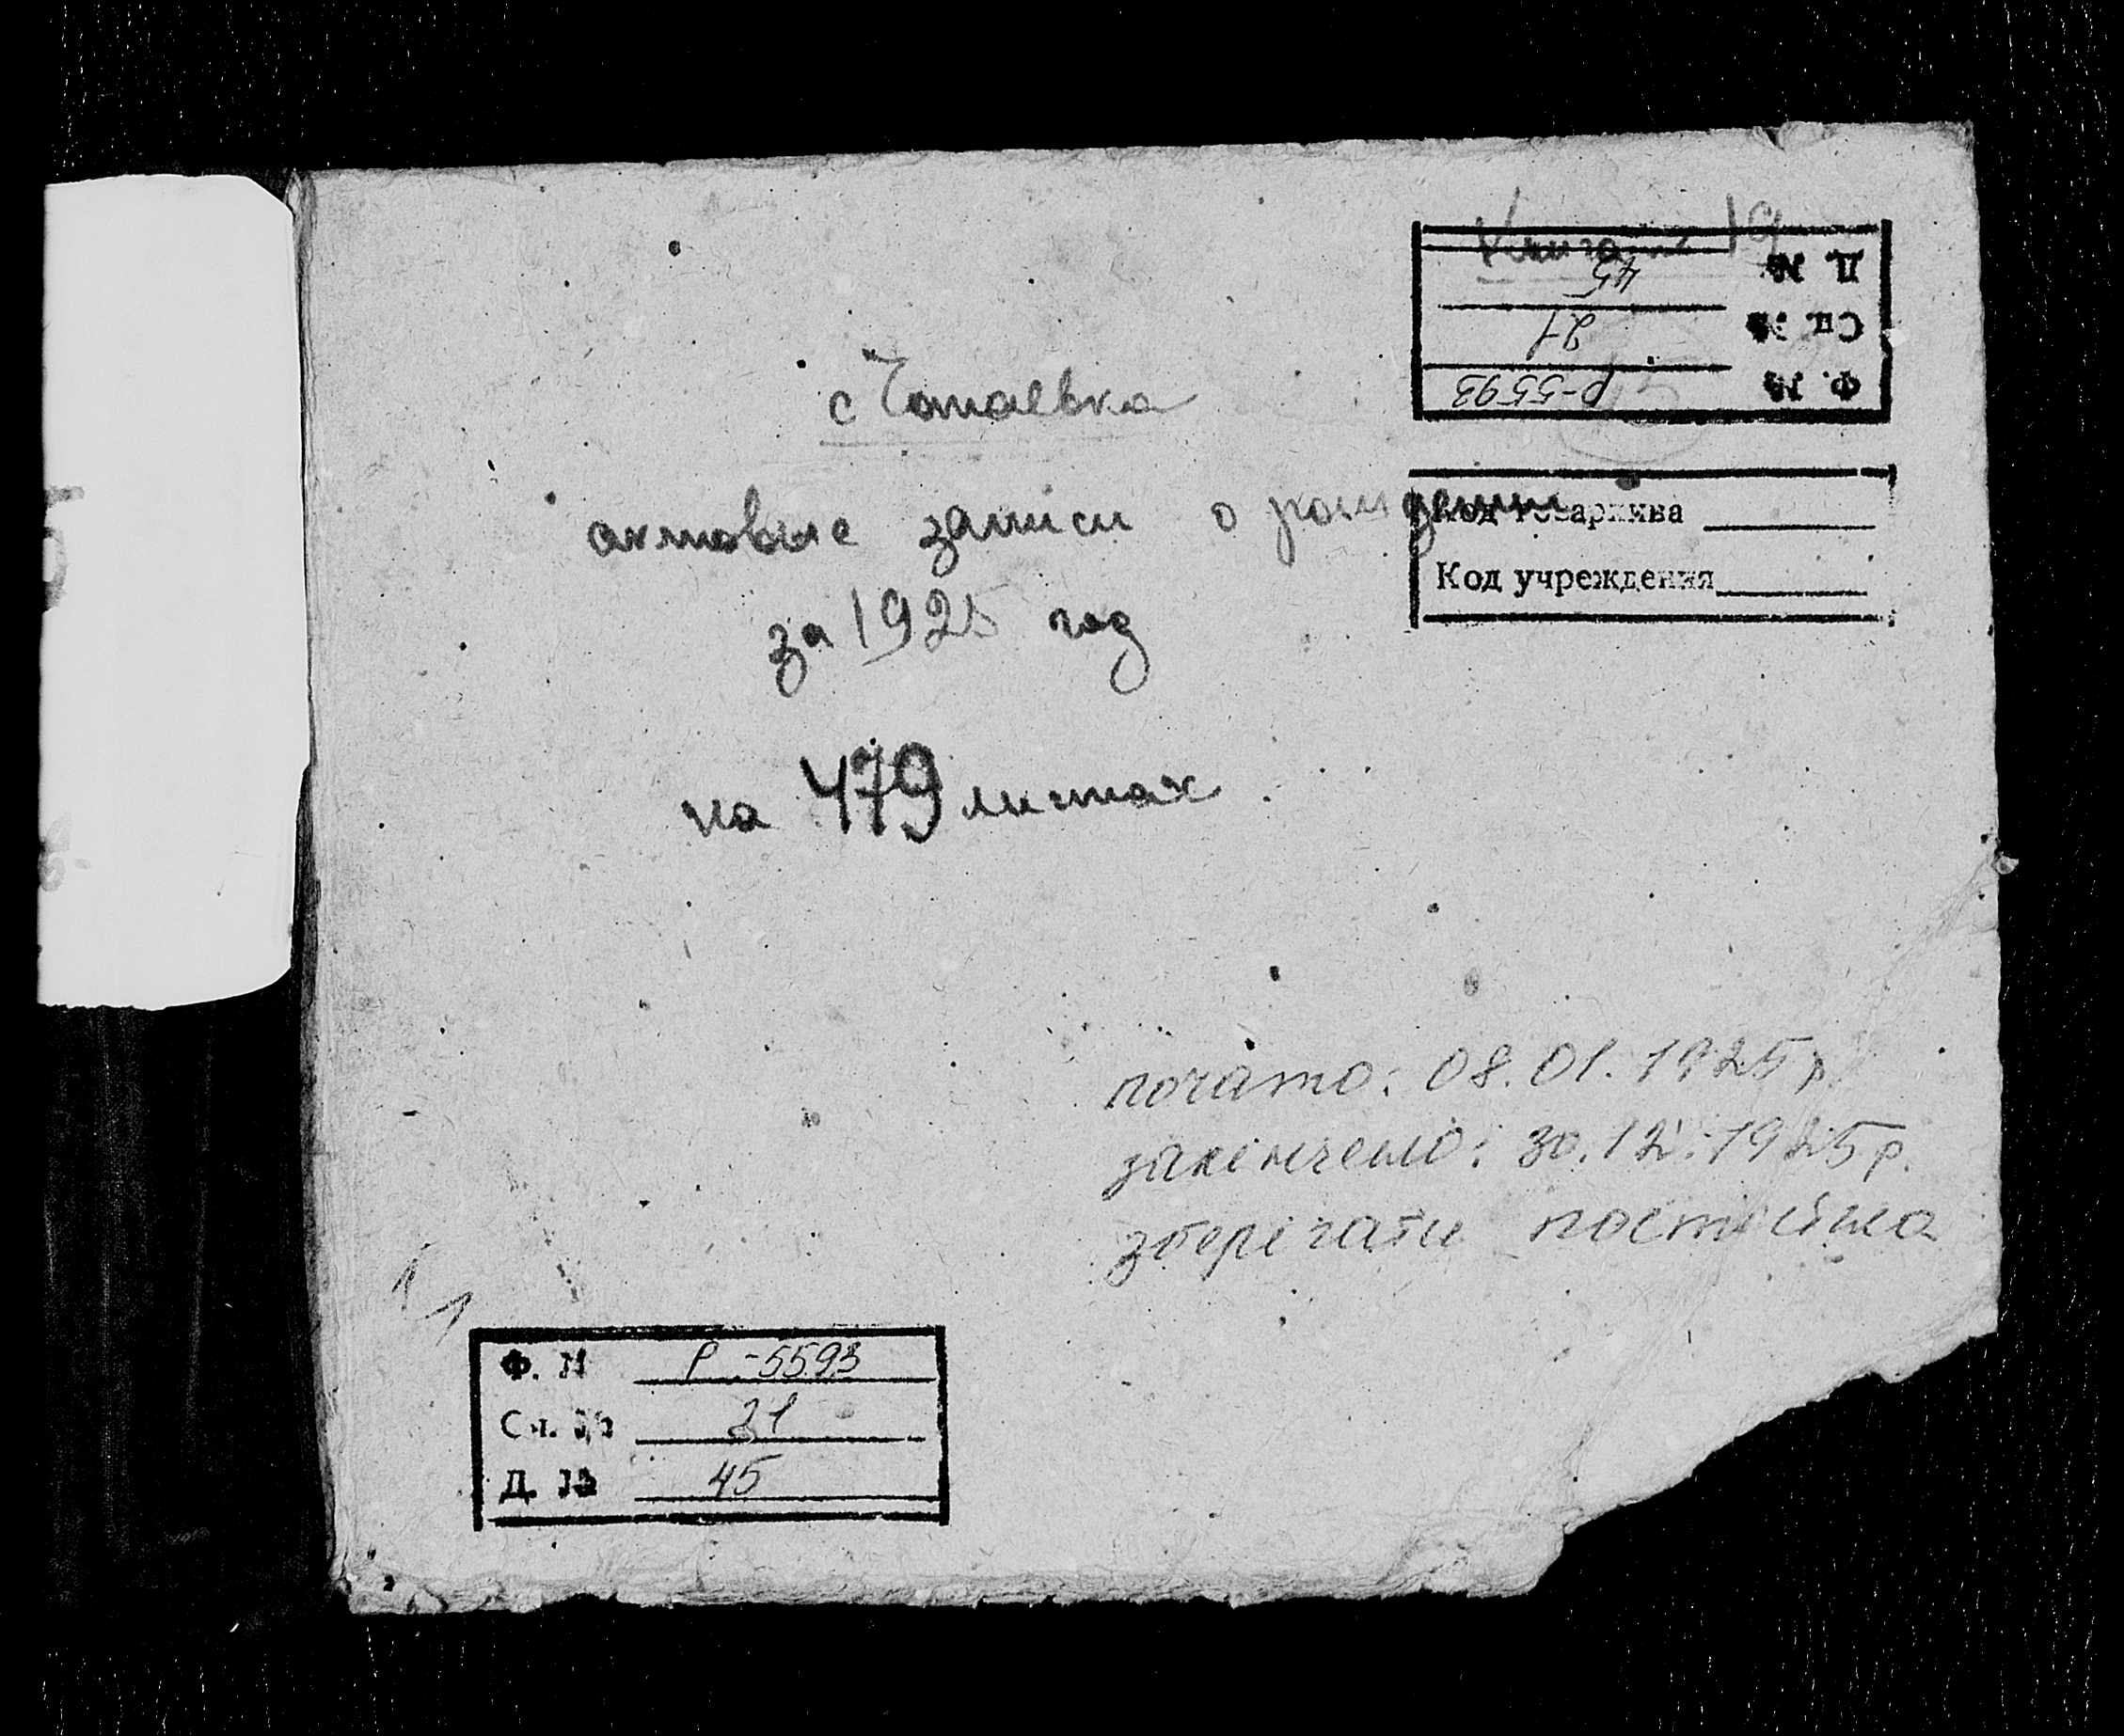 Книга 19
Д. № 45
Сп. № 21
Ф. № Р-5593
с Чапаевка
актовые записи о рождении
Код госархива
Код учреждения
за 1925 год
на 479 листах
почато: 08.01.1925 р.
закінчено: 30.12.1925 р.
зберігати постійно
1
1
Ф. № Р-5593
Сп. № 21
Д. № 45